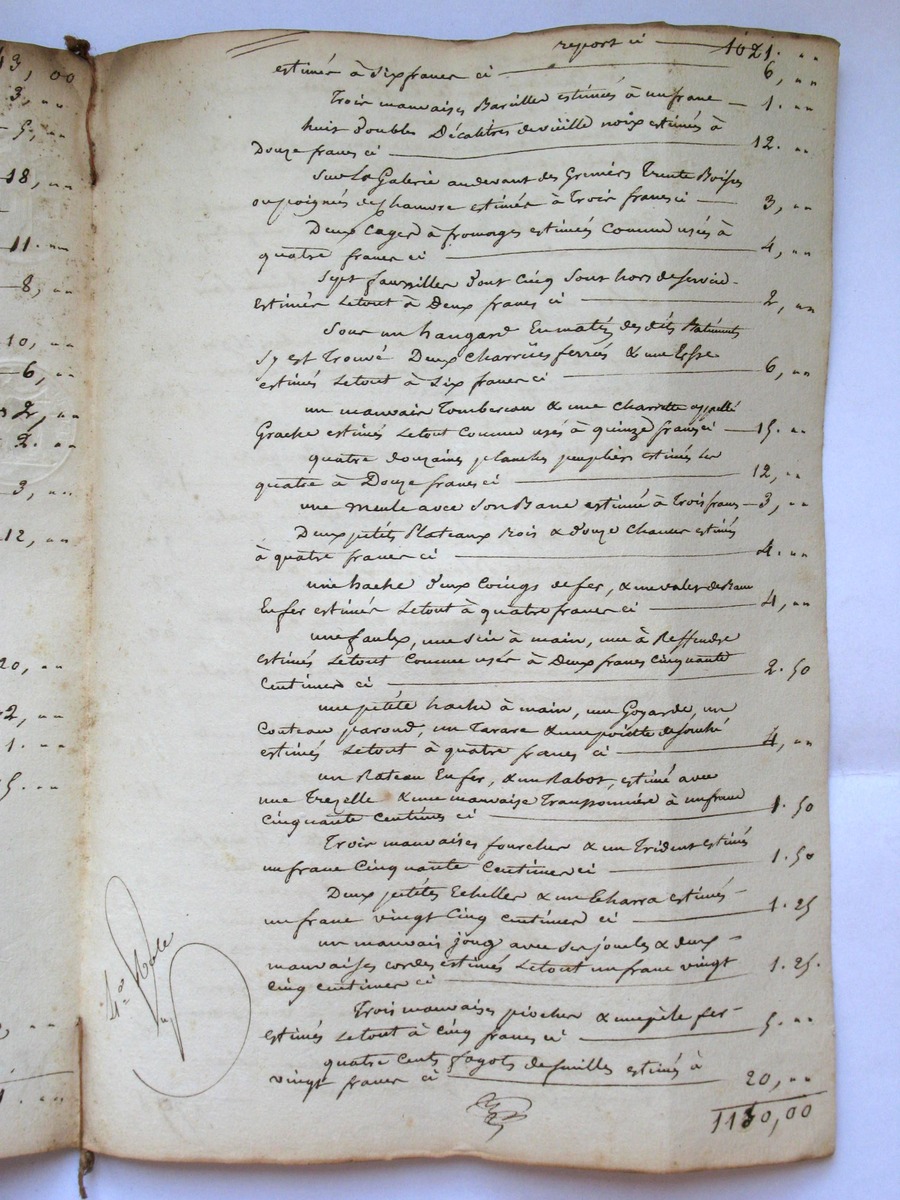 43, 00
3, ,,
5, ,,
18, ,,
11. ,,
8, ,,
10, ,,
6, ,,
2, ,,
2. ,,
3, ,,
12, ,,
20, ,,
2, ,,
1. ,,
5. ,,
report ci 1021. ,,
estimés à Six francs ci 6, ,,
Trois mauvaises Barilles estimées à un franc 1. ,,
huit Doubles Décalitres de vieille noix estimés à
Douze francs ci 12. ,,
Sur la Galerie au devant des Greniers Trente Boises
ou poignés de Chanvre estimée à Trois francs ci 3, ,,
Deux Cages à fromages estimées Comme usées à
quatre francs ci 4, ,,
Sept faussilles Dont Cinq Sont hors de Service
estimées Letout à Deux francs ci 2, ,,
Sous un hangard En matin des dits Batiments
S'y est Trouvé Deux Charrües ferrés & une Herse
estimés Letout à Six francs ci 6, ,,
un mauvais Tombereau & une Charrette appellé
Grache estimés Letout Comme usés à quinze francs ci 15. ,,
quatre douzaines planches peupliers estimés les
quatre à Douze francs ci 12, ,,
une meule avec Son Banc estimée à Trois francs 3, ,,
Deux petits Plateaux Bois & Douze Chaines estimés
à quatre francs ci 4. ,,
une hache Deux Coings de fer, & une valet de Banc
En fer estimés Letout à quatre francs ci 4, ,,
une faulx, une Scie à main, une à Reffendre
estimés Letout Comme usés à Deux francs cinquante
Centimes ci 2. 50
une petite hache à main, une Goyarde, un
Couteau parond, un Tarare & une pointe de fouché
estimés Letout à quatre francs ci 4, ,,
un Rateau En fer, & un Rabot, estimé avec
une Trezelle & une mauvaise Transonnière à un franc
cinquante Centimes ci 1. 50
Trois mauvaises fourches & un Trident estimés
un franc Cinquante Centimes ci 1. 50
Deux petites Echelles & un Charra estimés
un franc vingt Cinq Centimes ci 1. 25
un mauvais joug avec Ses joucles & deux
mauvaises cordes estimés Letout un franc vingt
Cinq Centimes ci 1. 25.
Trois mauvaises pioches & une pele fer
estimés Letout à Cinq francs ci 5. ,,
quatre Cents fagots de feuilles estimés à
vingt francs ci 20, ,,
1130,00
4e Role